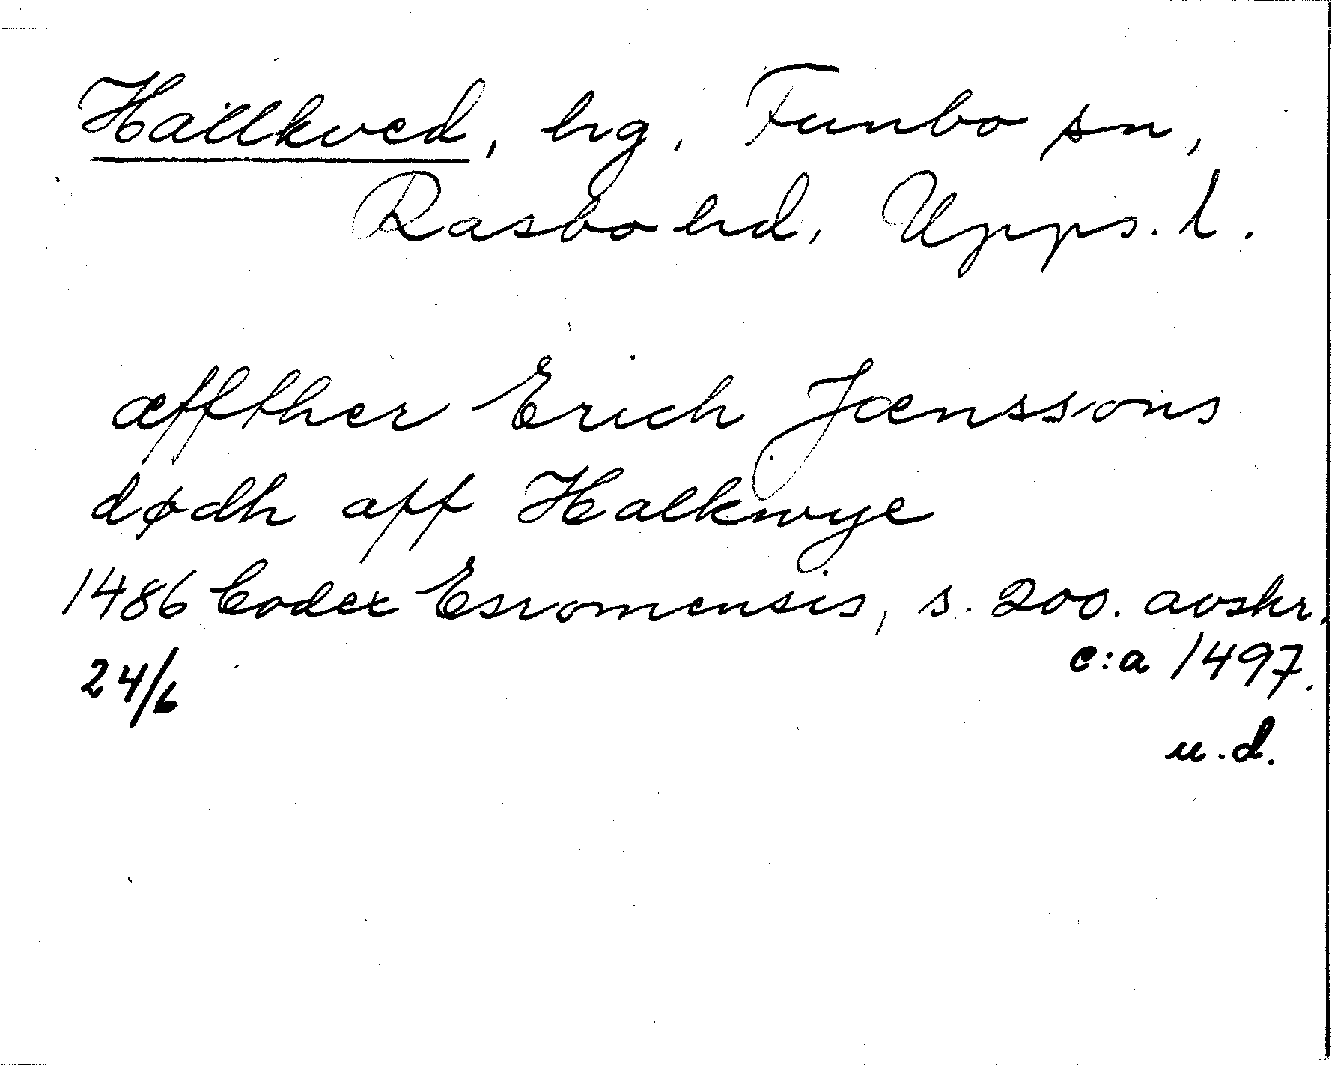 Hällkved, hg. Funbo sn,
Rasbo hd, Upps. l.
æffther Erich Jænssons
dødh aff Halkwye
1486 Codex Esromensis, s. 200. avskr.
24/6 c:a 1497.
u.d.